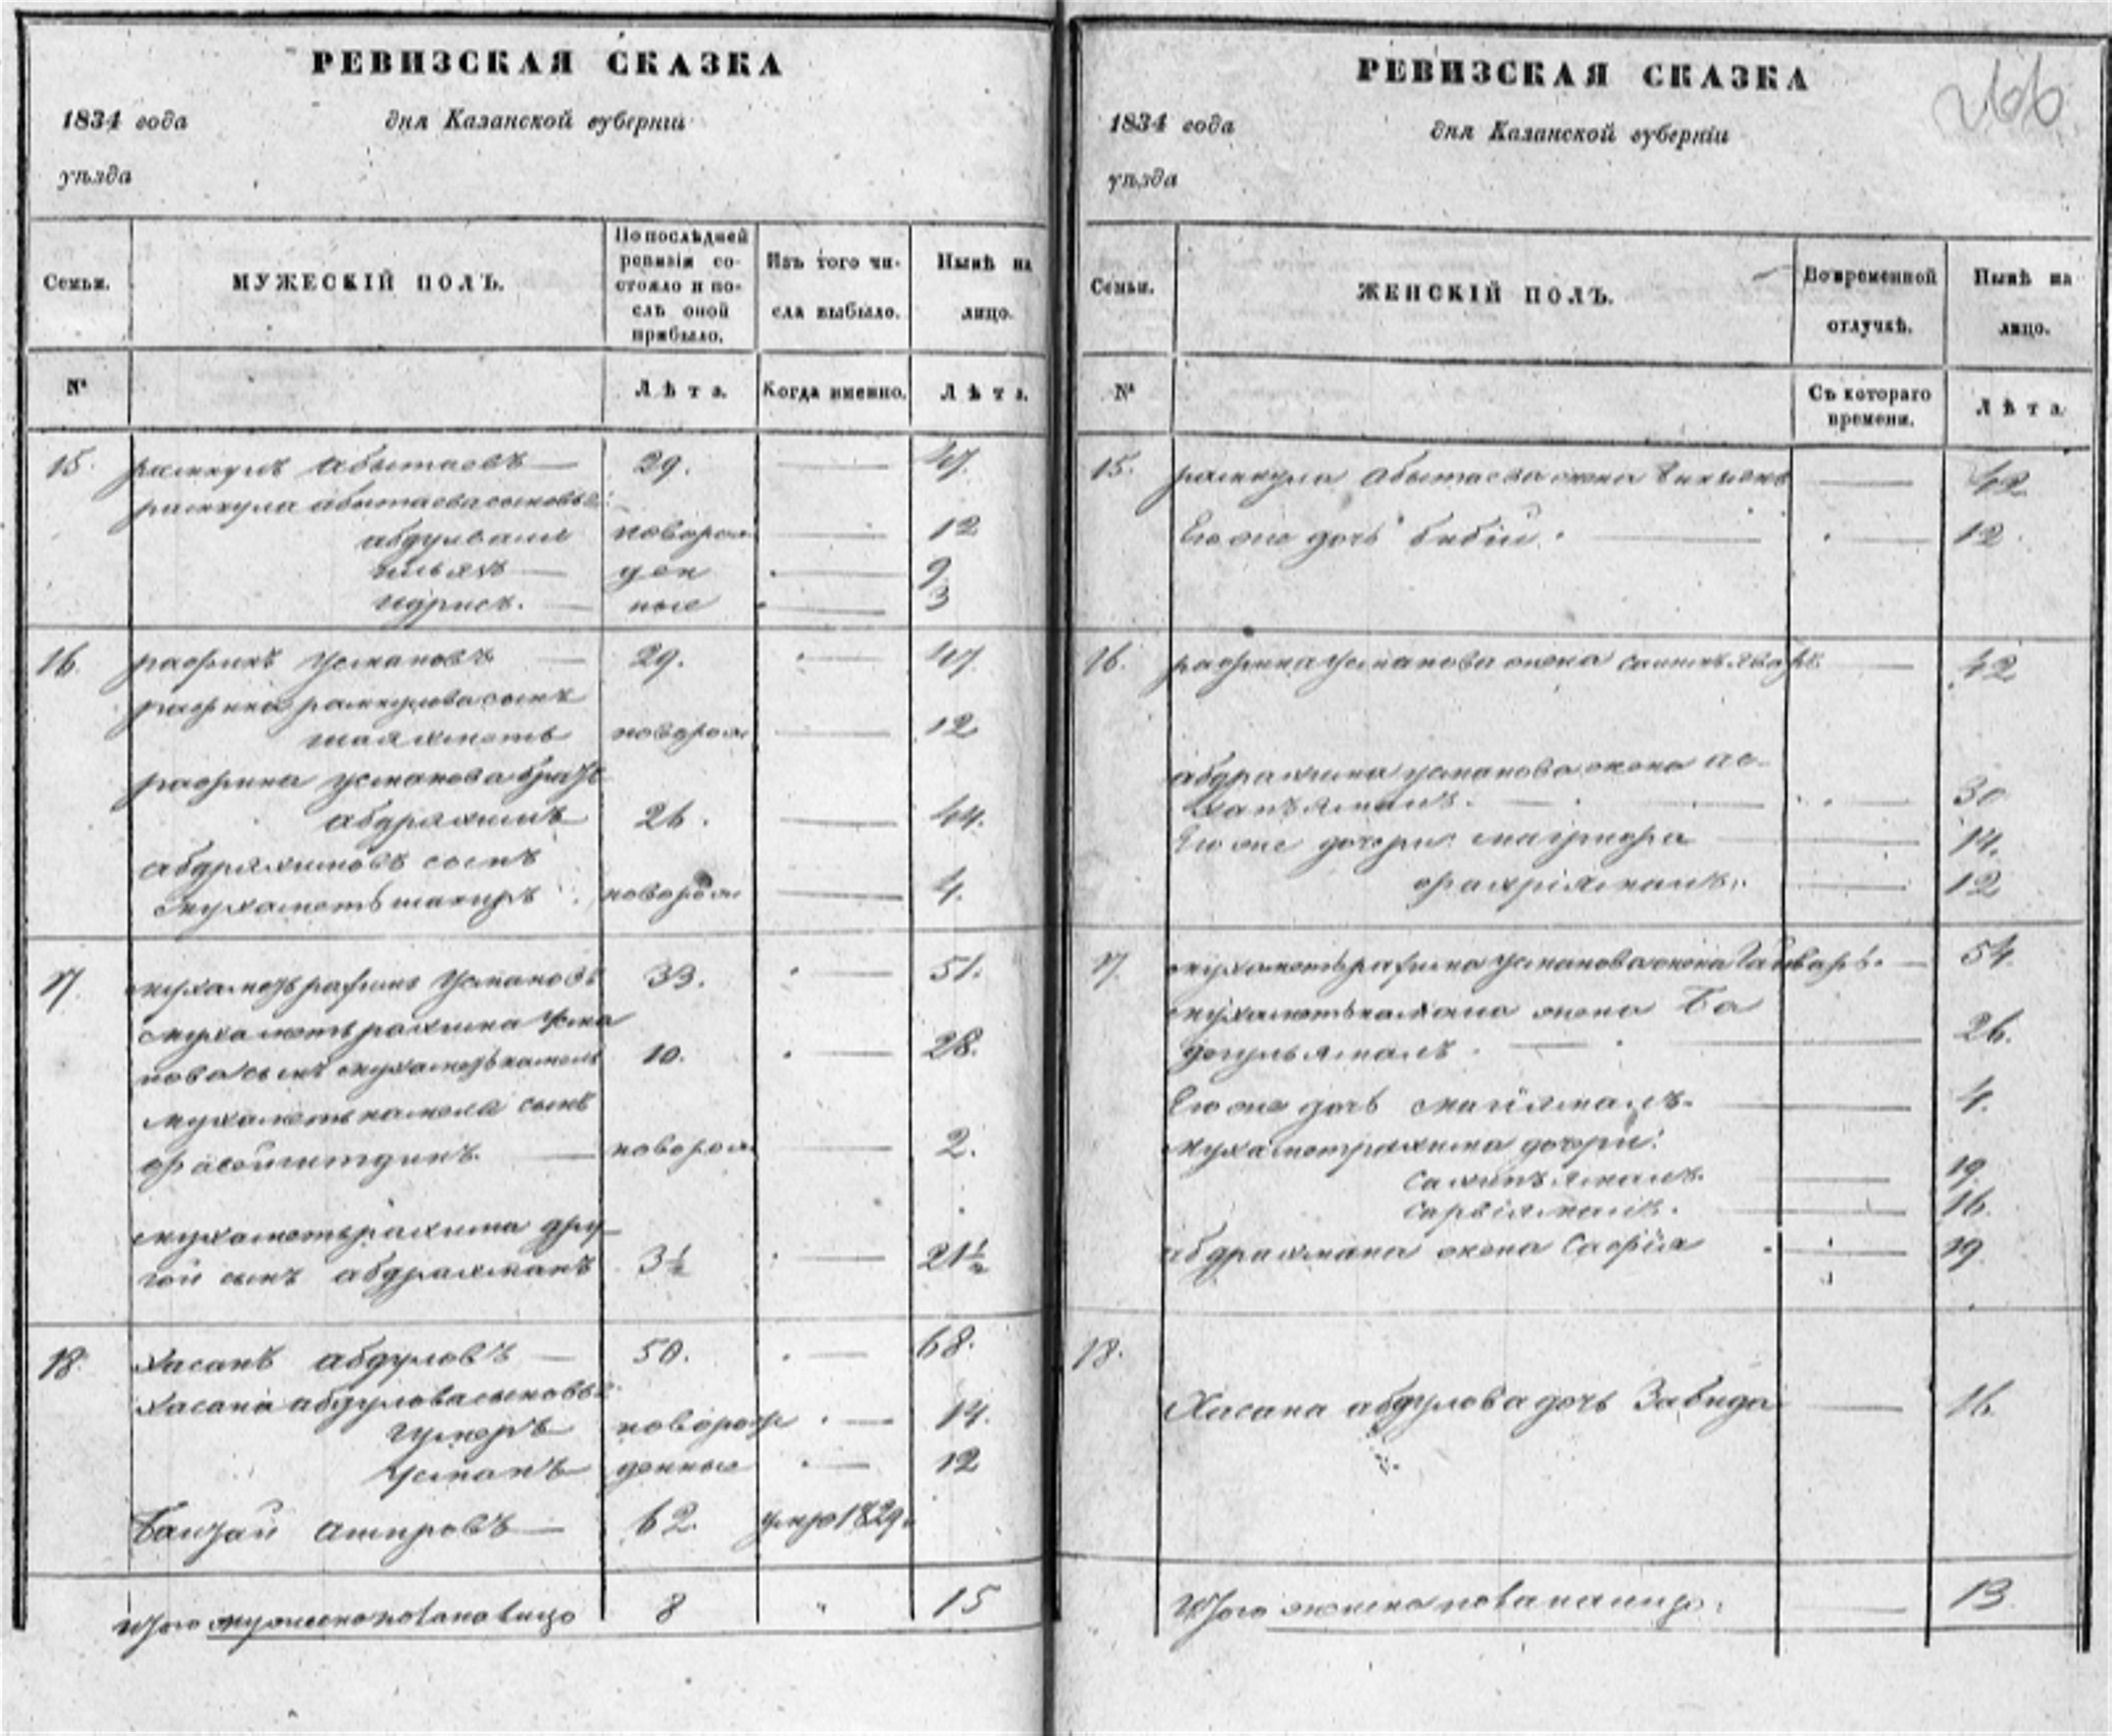 РЕВИЗСКАЯ СКАЗКА
1834 года дня Казанской губернiи
уѣзда
Семьи.
МУЖЕСКIЙ ПОЛЪ.
По послѣдней
ревизiи со-
стояло и по-
слѣ оной
прибыло.
Изъ того чи-
сла выбыло.
Нынѣ на
лицо.
№
Лѣта.
Когда именно.
Лѣта.
15. рамкулъ абытаевъ — 29. — 47.
рамкула абытаева сыновья:
абдулвали новорож 12
ильясъ — ден — 9
идрисъ. — ные — 3
16. рафикъ Усмановъ — 29. — 47.
рафика рамкулова сынъ
шаяхметь новорож — 12
рафика усманова братъ
абдряхимъ 26. — 44.
абдряхимовъ сынъ
мухаметьшакиръ новорож — 4.
17. Усмановъ 33. — 51.
мухаметьрахима Усма
нова сынъ мухаметькамелъ 10. — 28.
мухаметькамела сынъ
— новорож — 2.
мухаметьрахима дру-
гой сынъ абдрахманъ 3½ — 21½
18. Хасанъ абдуловъ — 50. — 68.
Хасана абдулова сыновья
Гумеръ новорож — 14.
Усманъ денные — 12
ашировъ — 62. умре 1829.
Итого мужеска пола на лицо 8 " 15
РЕВИЗСКАЯ СКАЗКА
266
1834 года дня Казанской губернiи
уѣзда
Семьи.
ЖЕНСКIЙ ПОЛЪ.
Во временной
отлучкѣ.
Нынѣ на
лицо.
№
Съ котораго
времени.
Лѣта.
15. рамкула абытаева жена — 42.
Его же дочь бибiи. — 12.
16. рафика усманова жена — 42
абдрахима усманова жена ас-
— 30
Его же дочери: магрифа — 14.
фахрiямалъ. — 12
17. усманова жена — 54.
жена Ба
— 26.
Его же дочь — 4.
мухаметрахима дочери:
сахипъямалъ. — 19.
сарвiямалъ. — 16.
абдрахмана жена Сафiя — 19.
18.
Хасана абдулова дочь Забида — 16.
Итого женска пола на лицо: — 13.